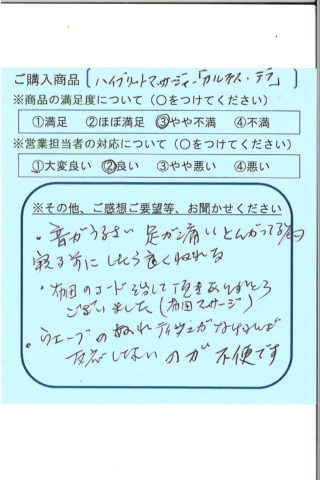 ご購入商品 〔ハイブリットマッサージャー「カルネス・テラ」〕
※商品の満足度について（○をつけてください）
①満足 ②ほぼ満足 ③やや不満 ④不満
※営業担当者の対応について（○をつけてください）
①大変良い ②良い ③やや悪い ④悪い
※その他、ご感想ご要望等、お聞かせください
・音がうるさい 足が痛い とんがってる
寝る前にしたら良くねれる
・布団のコード を して頂きありがとう
ございました（布団マッサージ）
・ウェーブの が なければ
反応しないのが 不便です